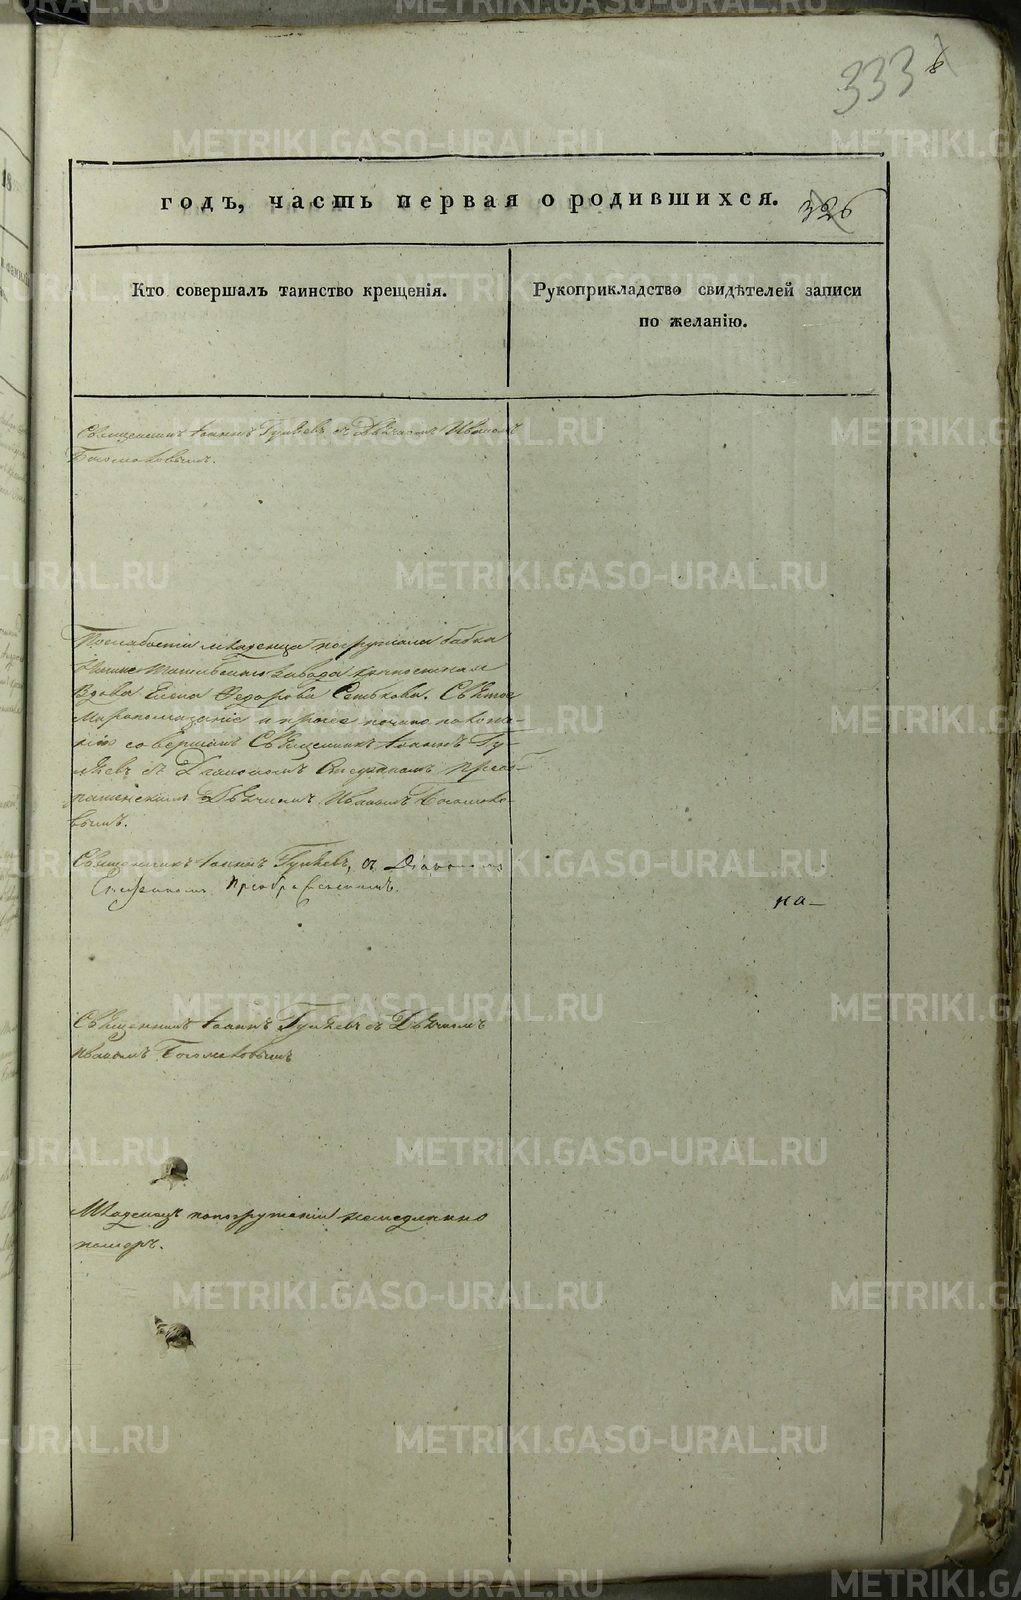 333
годъ, часть первая о родившихся. 326
Кто совершалъ таинство крещенія.
Рукоприкладство свидѣтелей записи
по желанію.
Священникъ Іоаннъ Гуляевъ съ Дьячкомъ Иваномъ
Богомоловымъ.
По слабости младенца погружала бабка
Нижне Тагильскаго завода крѣпостная
Вдова Елена Федорова. Святое
Миропомазаніе и прочее по чиноположе-
нію совершалъ Священникъ Іоаннъ Гу-
ляевъ съ Діакономъ Преоб-
раженскимъ Дьячкомъ Иваномъ Богомоло-
вымъ.
Священникъ Іоаннъ Гуляевъ, съ Діакономъ
Преображенскимъ.
на-
Священникъ Іоаннъ Гуляевъ съ Дьячкомъ
Иваномъ Богомоловымъ
Младенецъ по погруженіи немедленно
померъ.
METRIKI.GASO-URAL.RU